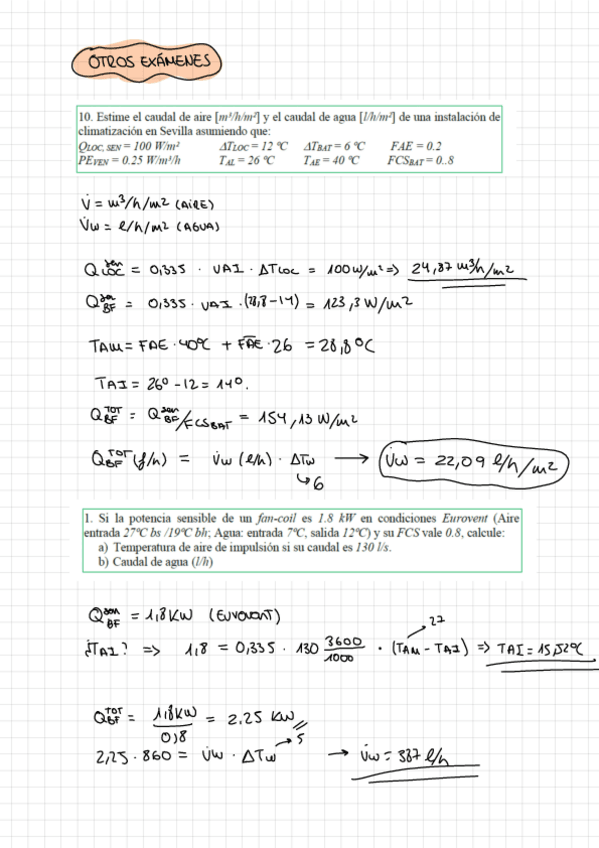 OTROS EXÁMENES
10. Estime el caudal de aire [m³/h/m²] y el caudal de agua [l/h/m²] de una instalación de
climatización en Sevilla asumiendo que:
Q_LOC, SEN = 100 W/m² ΔT_LOC = 12 ºC ΔT_BAT = 6 ºC FAE = 0.2
PE_VEN = 0.25 W/m³/h T_AL = 26 ºC T_AE = 40 ºC FCS_BAT = 0..8
V̇ = m³/h/m² (AIRE)
V̇w = l/h/m² (AGUA)
Q_LOC^sen = 0,335 · VAI · ΔTLOC = 100 W/m² => 24,87 m³/h/m²
Q_BF^sen = 0,335 · VAI · (28,8 - 14) = 123,3 W/m²
TAM = FAE · 40ºC + F̅A̅E̅ · 26 = 28,8ºC
TAI = 26º - 12 = 14º.
Q_BF^TOT = Q_BF^sen / FCS_BAT = 154,13 W/m²
Q_BF^TOT (f/h) = V̇w (l/h) · ΔTw → V̇w = 22,09 l/h/m²
↳ 6
1. Si la potencia sensible de un fan-coil es 1.8 kW en condiciones Eurovent (Aire
entrada 27ºC bs /19ºC bh; Agua: entrada 7ºC, salida 12ºC) y su FCS vale 0.8, calcule:
a) Temperatura de aire de impulsión si su caudal es 130 l/s.
b) Caudal de agua (l/h)
Q_BF^sen = 1,8 KW (EUROVENT)
27
¿TAI? => 1,8 = 0,335 · 130 3600/1000 · (TAM - TAI) => TAI = 15,52ºC
Q_BF^TOT = 1,8KW/0,8 = 2,25 KW
5
2,25 · 860 = V̇w · ΔTw → V̇w = 387 l/h